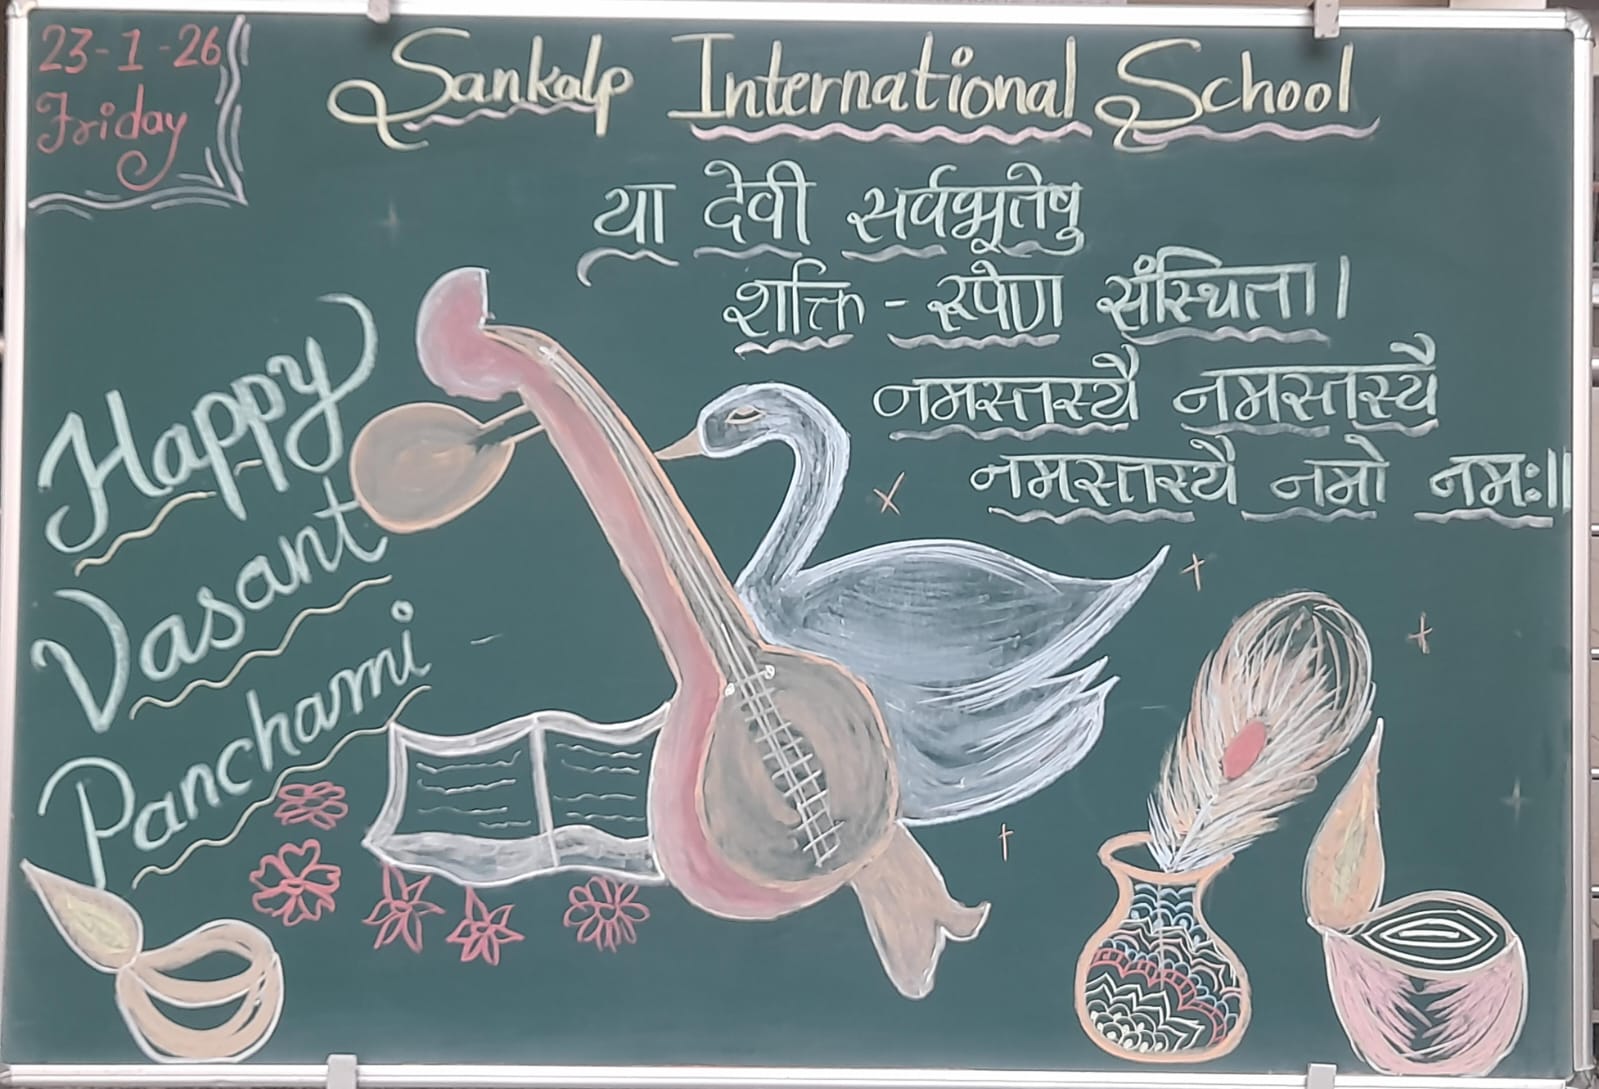 23-1-26
Friday
Sankalp International School
या देवी सर्वभूतेषु
शक्ति - रूपेण संस्थिता।
नमस्तस्यै नमस्तस्यै
नमस्तस्यै नमो नमः॥
Happy
Vasant
Panchami